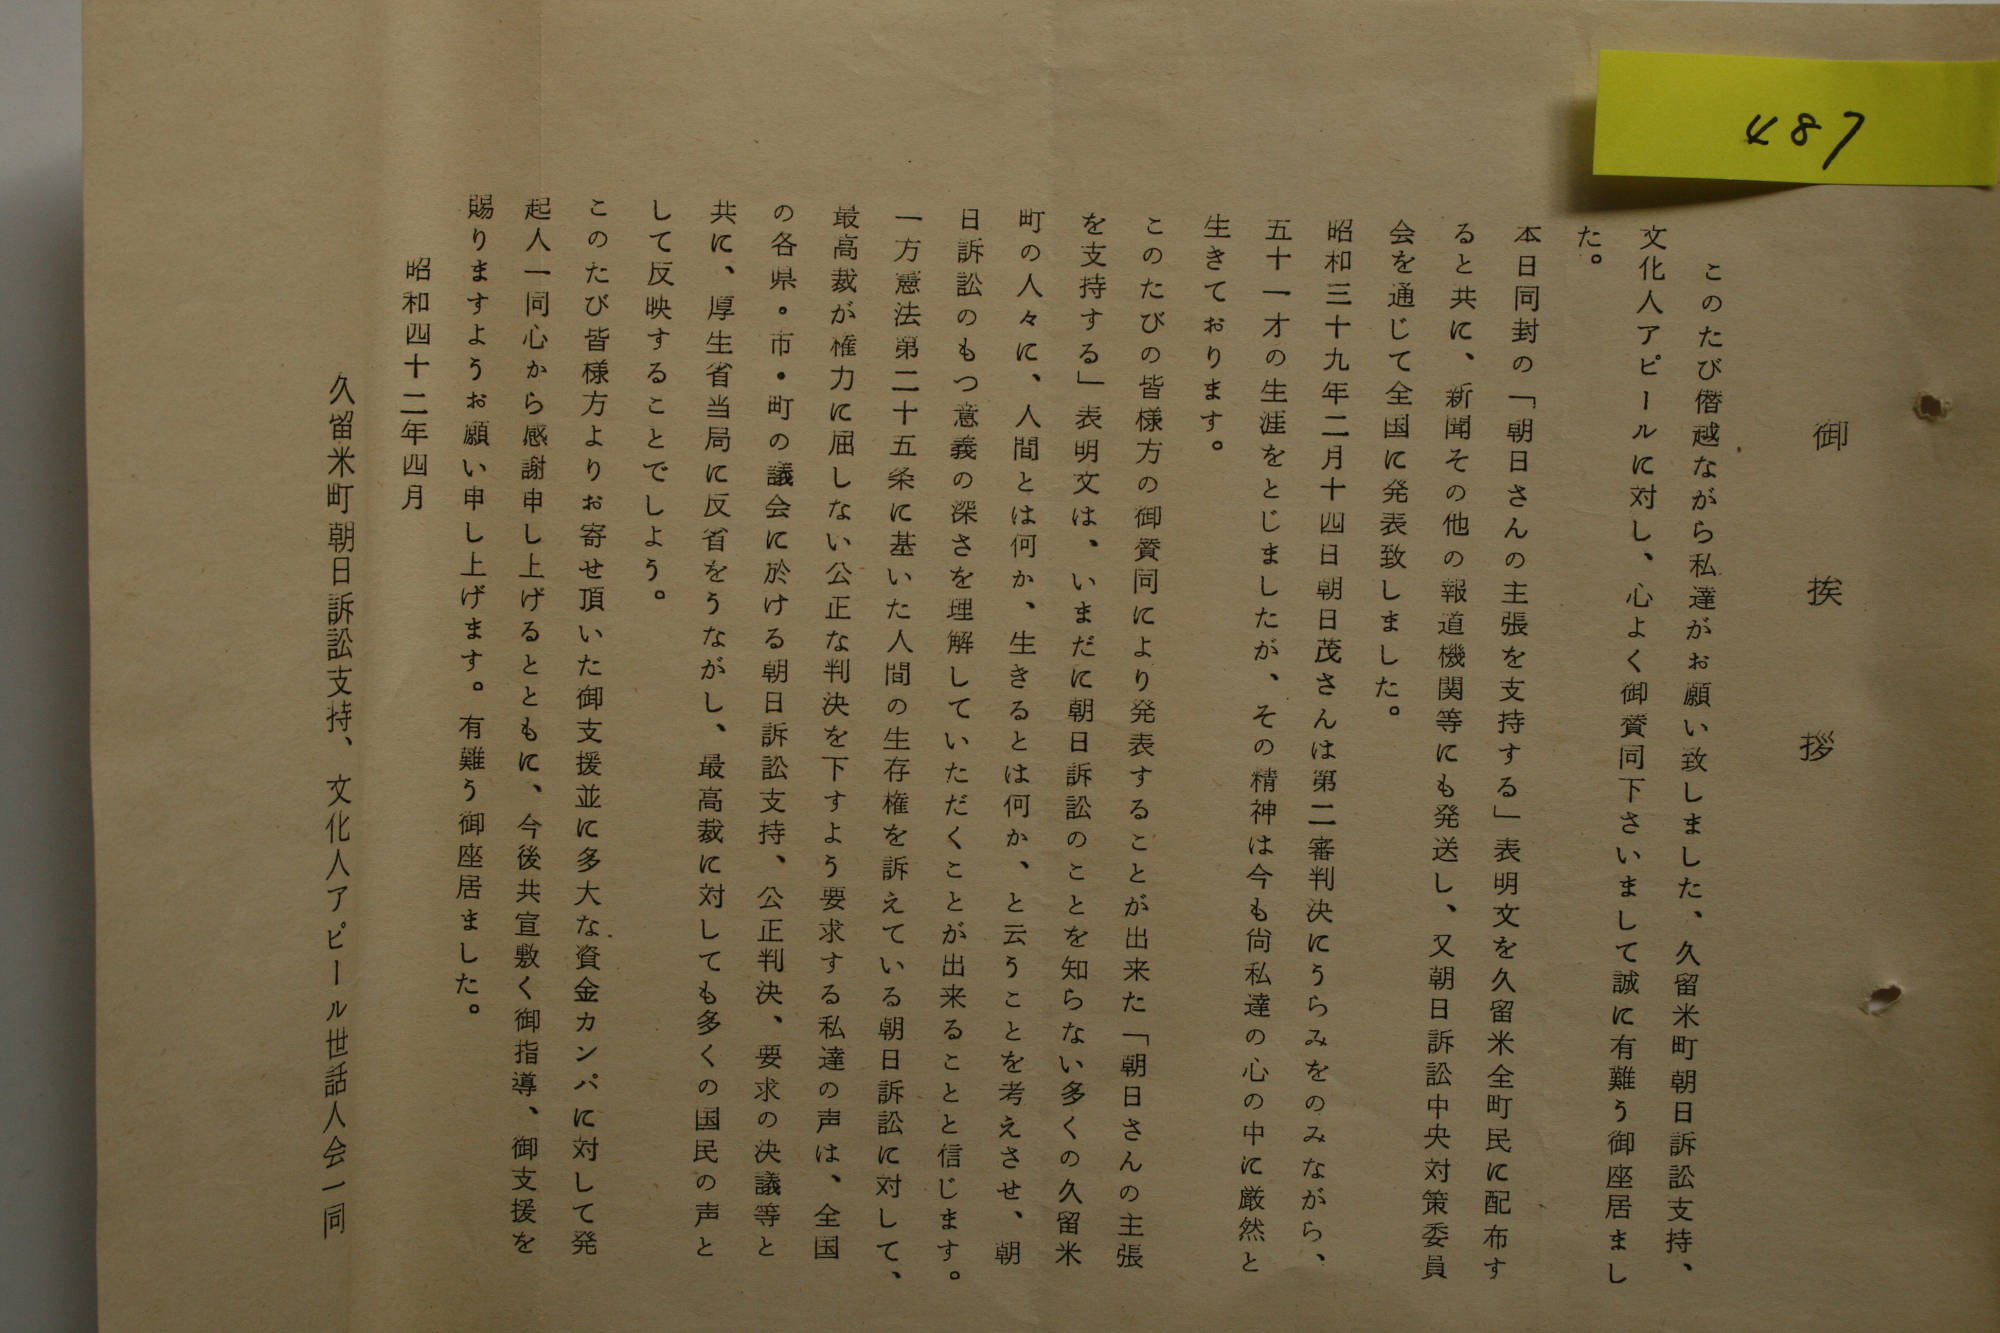 487
御挨拶
このたび僭越ながら私達がお願い致しました、久留米町朝日訴訟支持、
文化人アピールに対し、心よく御賛同下さいまして誠に有難う御座居まし
た。
本日同封の「朝日さんの主張を支持する」表明文を久留米全町民に配布す
ると共に、新聞その他の報道機関等にも発送し、又朝日訴訟中央対策委員
会を通じて全国に発表致しました。
昭和三十九年二月十四日朝日茂さんは第二審判決にうらみをのみながら、
五十一才の生涯をとじましたが、その精神は今も尚私達の心の中に厳然と
生きております。
このたびの皆様方の御賛同により発表することが出来た「朝日さんの主張
を支持する」表明文は、いまだに朝日訴訟のことを知らない多くの久留米
町の人々に、人間とは何か、生きるとは何か、と云うことを考えさせ、朝
日訴訟のもつ意義の深さを理解していただくことが出来ることと信じます。
一方憲法第二十五条に基いた人間の生存権を訴えている朝日訴訟に対して、
最高裁が権力に屈しない公正な判決を下すよう要求する私達の声は、全国
の各県・市・町の議会に於ける朝日訴訟支持、公正判決、要求の決議等と
共に、厚生省当局に反省をうながし、最高裁に対しても多くの国民の声と
して反映することでしよう。
このたび皆様方よりお寄せ頂いた御支援並に多大な資金カンパに対して発
起人一同心から感謝申し上げるとともに、今後共宣敷く御指導、御支援を
賜りますようお願い申し上げます。有難う御座居ました。
昭和四十二年四月
久留米町朝日訴訟支持、文化人アピール世話人会一同